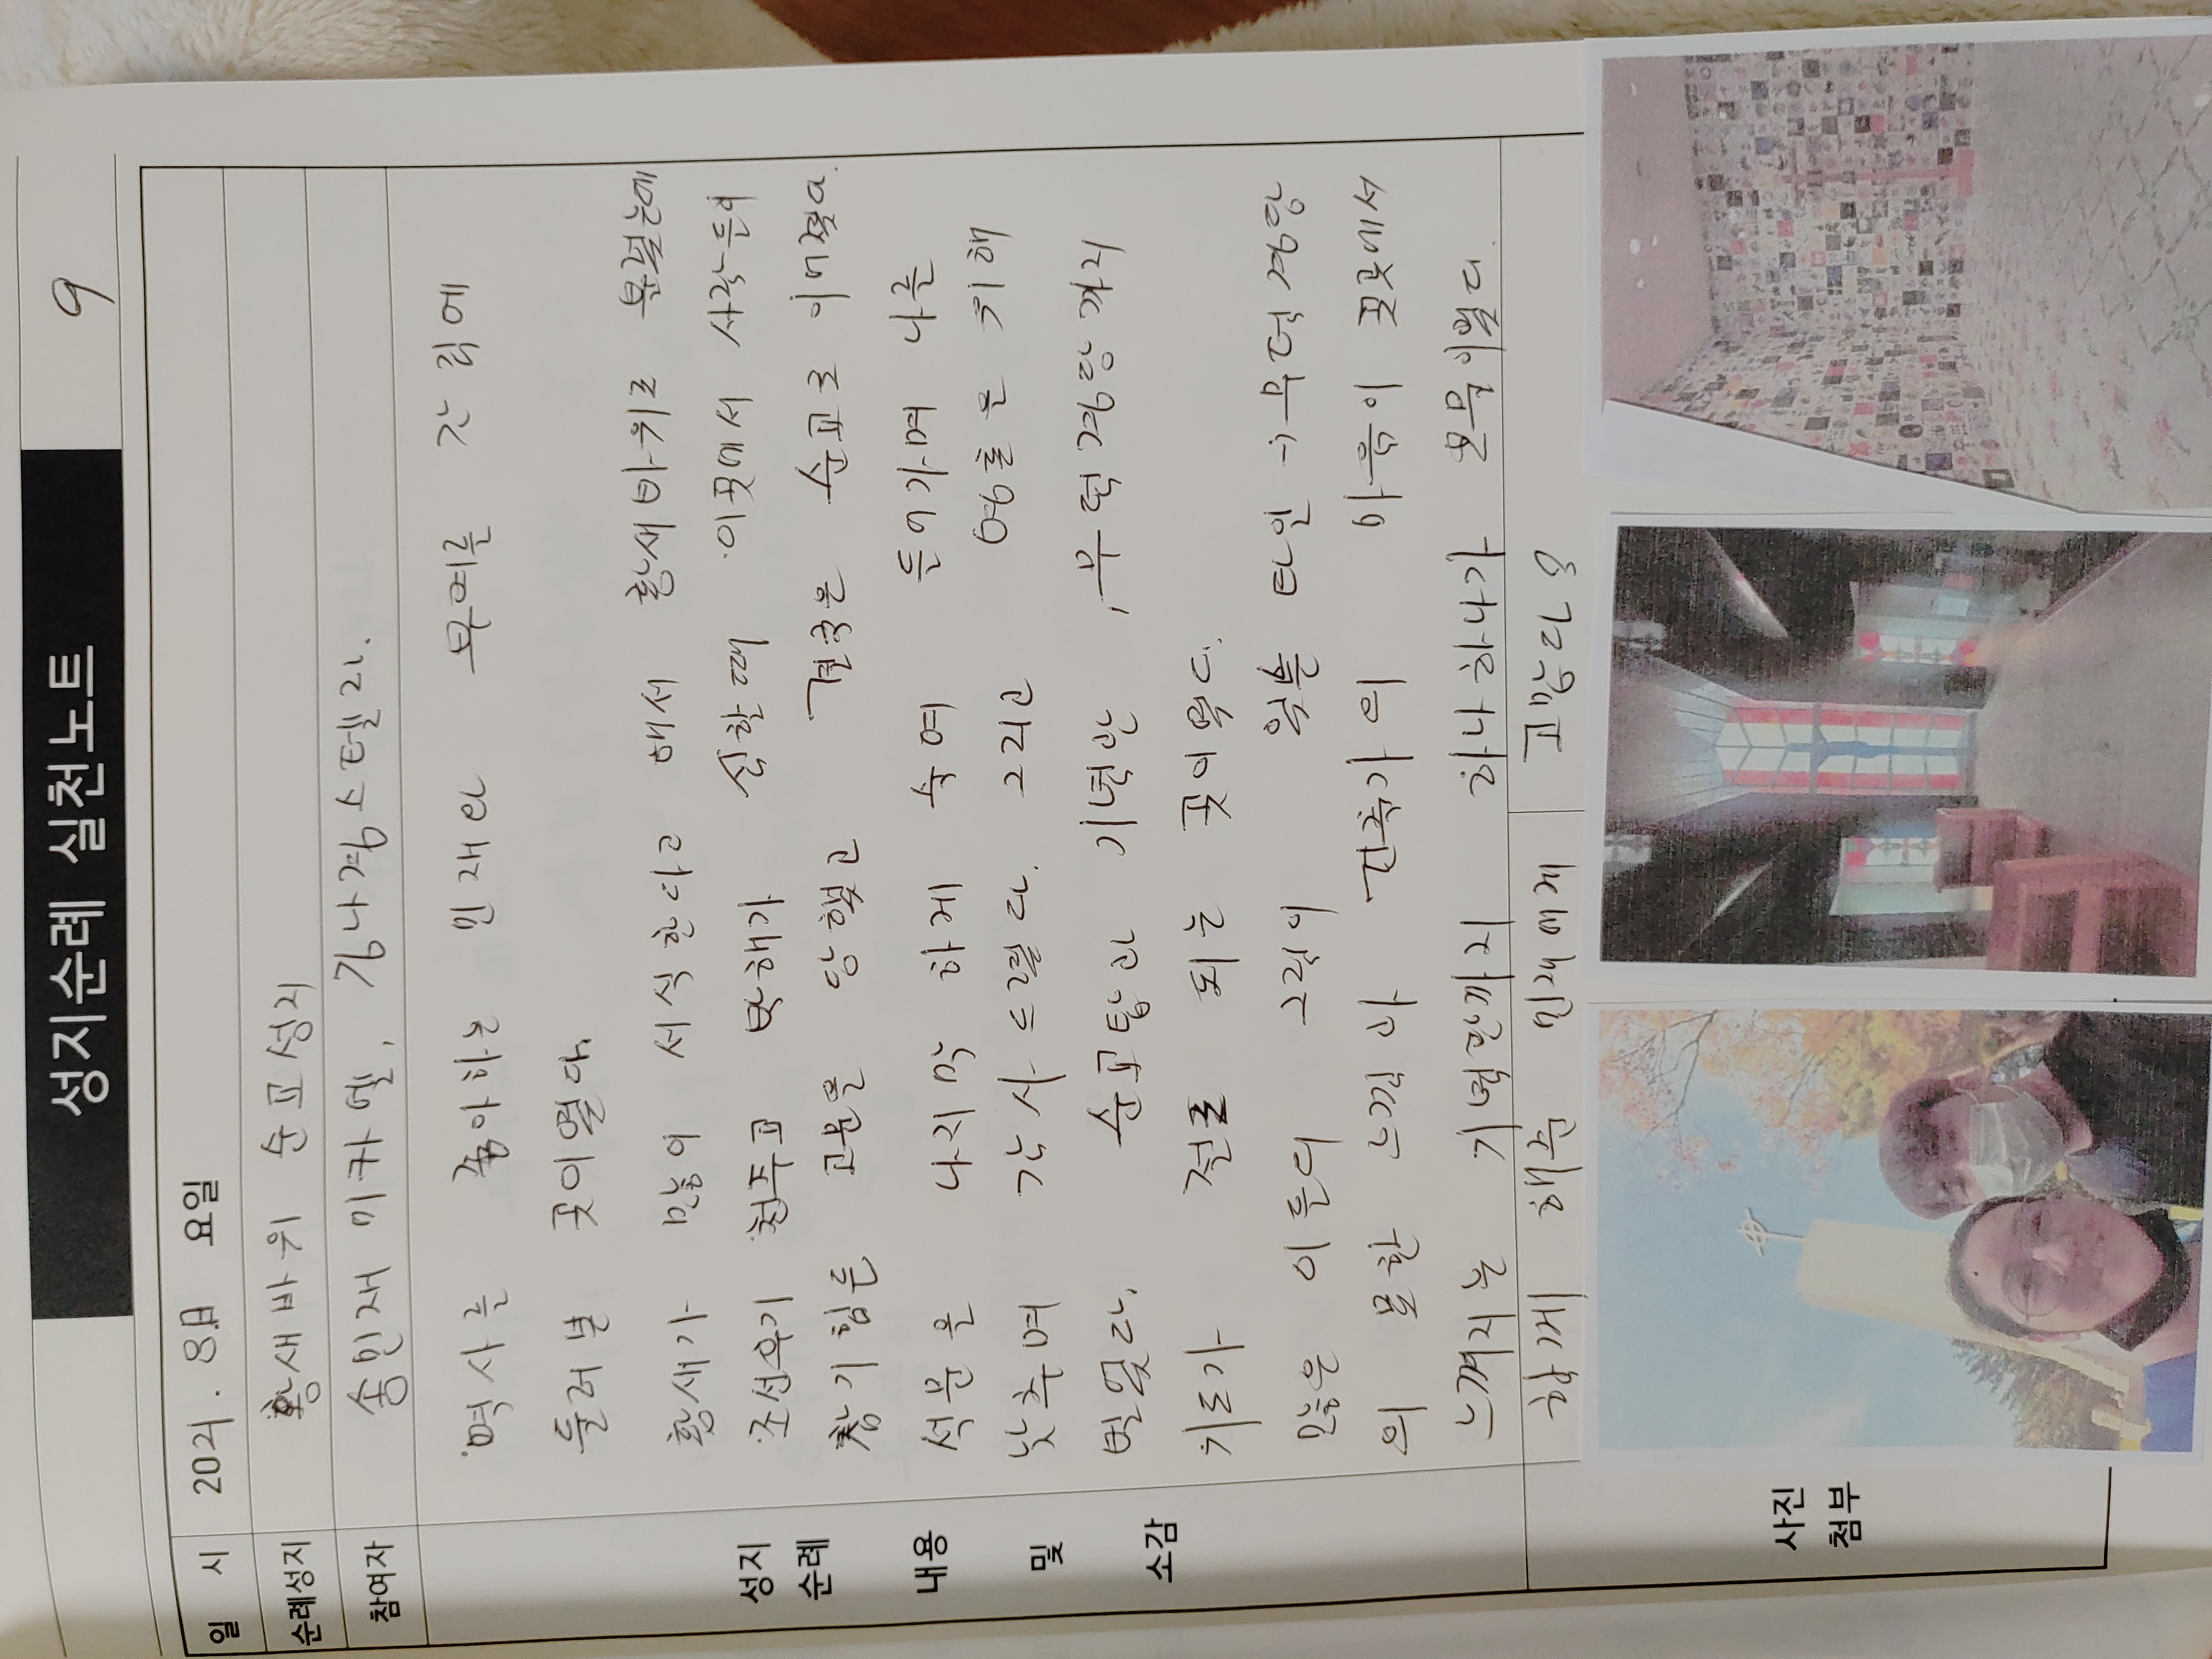 성지순례 실천노트 9
일 시 2021. 8. 요일
순례성지 황새바위 순교성지
참여자 송민재 미카엘, 김나경스텔라.
역사를 좋아하는 민재와 부여를 간 김에
들러본 곳이였다.
황새가 많이 서식한다고 해서 황새바위로 불렸는데
조선후기 천주교 박해가 심할때 이곳에서 사람들이
참기힘든 고문을 당했고 결국은 순교로 이어졌다.
석문은 나지막 하게 숙여 들어가며 나를
낮추며 감사드렸다. 그리고 영혼을 위해
빌었다. 순교탑과 기념관, 무덤경당까지
기도가 절로 되는 곳이였다.
많은 이들의 그림이 타일 → 무덤경당
의 묘한 느낌과 건축가의 마음이 곳곳에서
느껴지는 기념관까지 하나하나가 보물이였다.
함께 해준 민재에게 고맙다
성지
순례
내용
및
소감
사진
첨부